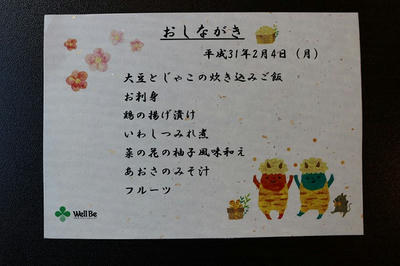 おしながき
平成31年2月4日（月）
大豆とじゃこの炊き込みご飯
お刺身
鶏の揚げ漬け
いわしつみれ煮
菜の花の柚子風味和え
あおさのみそ汁
フルーツ
Well Be